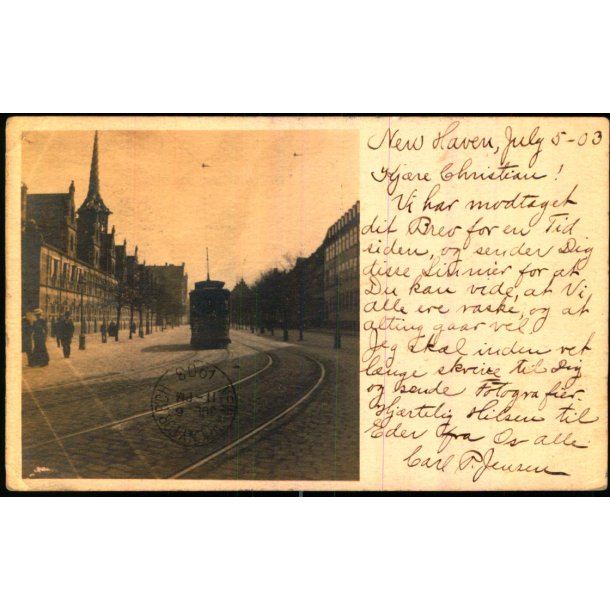 New Haven, July 5-03
Kjære Christian!
Vi har modtaget
dit Brev for en Tid
siden, og sender Dig
disse Linnier for at
Du kan vide, at Vi
alle ere raske, og at
alting gaar vel
Jeg skal inden ret
længe skrive til Dig
og sende Fotografier.
Hjærtelig Hilsen til
Eder fra Os alle
Carl P. Jensen
JUL 6
11-PM
1903